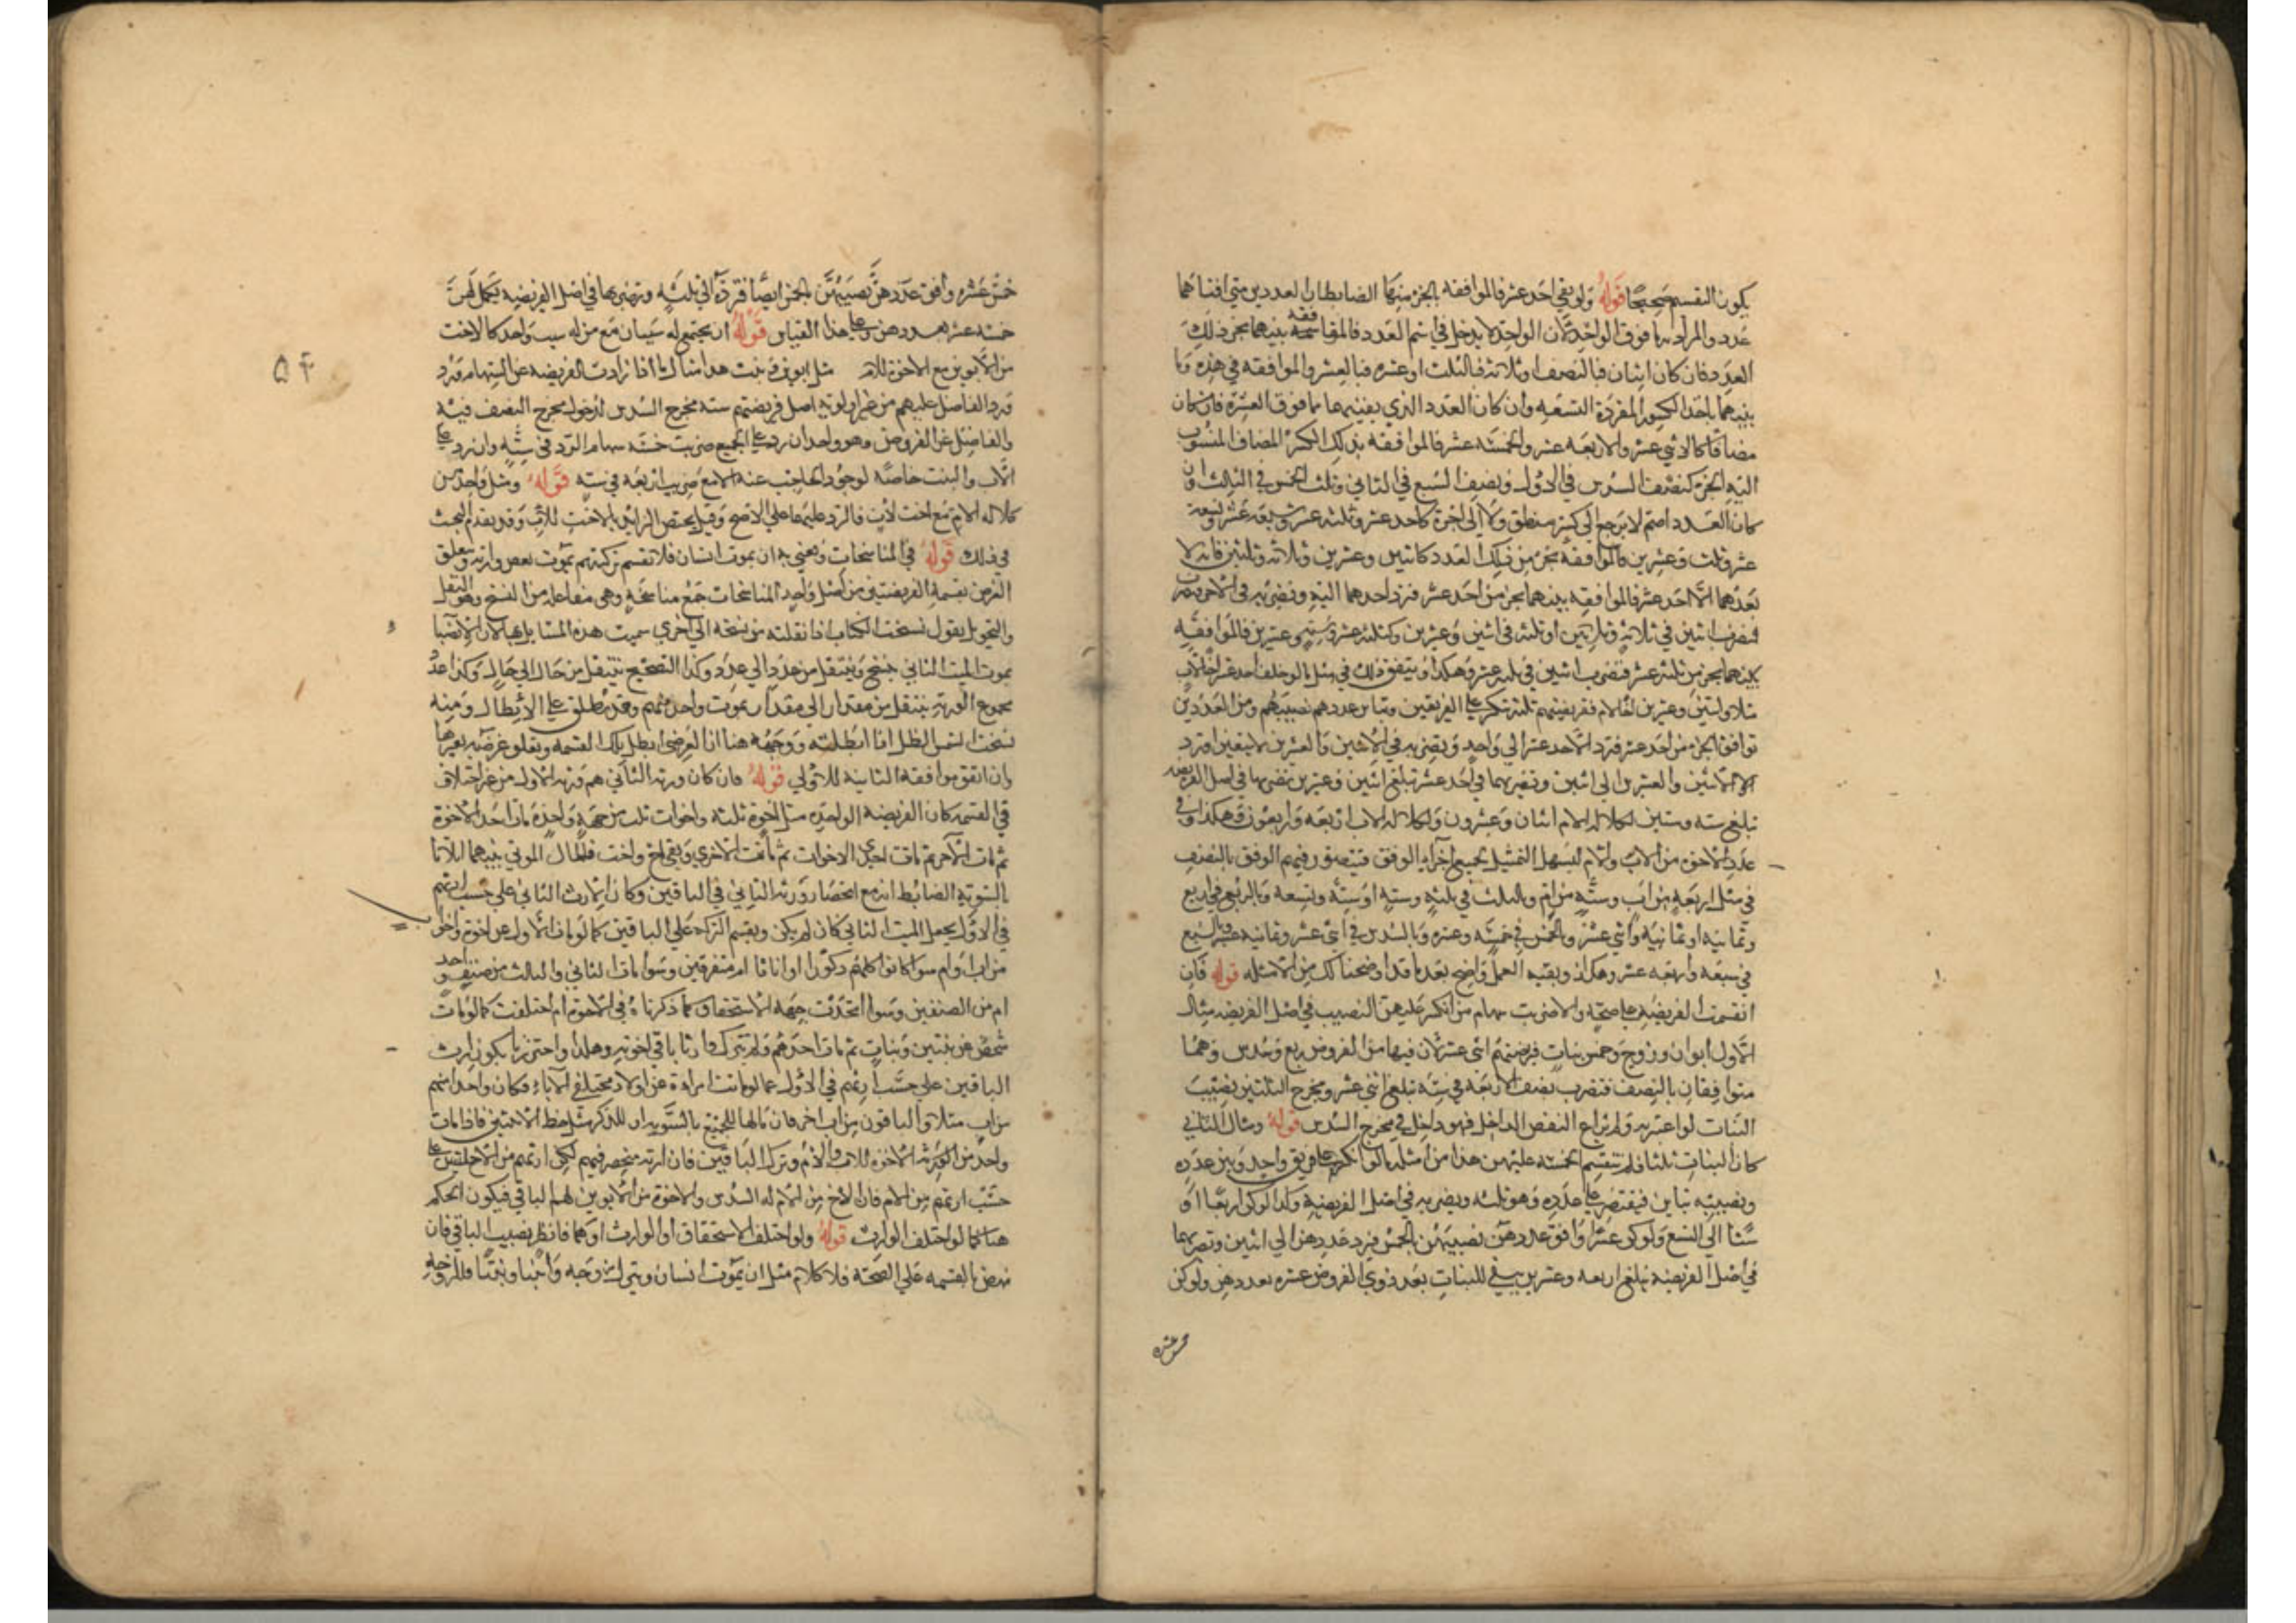 يكون القسم صحيحا قوله ولو بقي احد عشر فالموافقه بالجزء منها الضابط ان العددين متي افناهما
عدد والمراد به ما فوق الواحد لان الواحد لا يدخل في اسم العدد فالموافقه بينهما بجزء ذلك
العدد فان كان اثنان فبالنصف او ثلاثة فبالثلث او عشره فبالعشر والموافقه في هذه وما
بينهما باحد الكسور المفردة التسعه وان كان العدد الذي يفنيهما ما فوق العشرة فان كان
مضافا كالاثني عشر والاربعه عشر والخمسه عشر فالموافقه بذلك الكسر المضاف المنسوب
اليه الجزء كنصف السدس في الاول ونصف السبع في الثاني وثلث الخمس في الثالث وان
كان العدد اصم لا يرجع الي كسر منطق ولا الي اجزء كاحد عشر وثلثه عشر وسبعه عشر وتسعه
عشر وثلث وعشرين فالموافقه بجزء من ذلك العدد كاثنين وعشرين وثلاثه وثلثين فانه لا
يعدهما الا احد عشر فالموافقه بينهما بجزء من احد عشر فترد احدهما اليه وتضربه في الاخر
فتضرب اثنين في ثلاثة وثلاثين او ثلثه في اثنين وعشرين وكثلثه عشر وستة وعشرين فالموافقه
بينهما بجزء من ثلثه عشر فتضرب اثنين في ثلثه عشر وهكذا ويتفق ذلك في مثل ما لو خلف احد عشر اخا لاب
مثلا واثنين وعشرين لام ففريضتهم ثلثه تنكسر علي الفريقين وتباين عددهم نصيبهم وبين العددين
توافق بالجزء من احد عشر فترد الاحد عشر الي واحد وتضربه في الاثنين والعشرين لا تبقين او ترد
الاثنين والعشرين الي اثنين وتضربهما في احد عشر تبلغ اثنين وعشرين تضربها في اصل الفريضه
تبلغ سته وستين لكلاله الام اثنان وعشرون ولكلاله الاب اربعه واربعون وهكذا
عدد الاخوه من الاب والام ليسهل التمثيل بجميع اجزاء الوفق فيتصور فيهم الوفق بالنصف
في مثل اربعه من اب وستة من ام وبالثلث في ثلثه وسته او سته وتسعه وبالربع في اربع
وثمانيه او ثمانيه واثني عشر وبالخمس في خمسه وعشره وبالسدس في اثني عشر وثمانيه عشر وبالسبع
في سبعه واربعه عشر وهكذا وبقيه العمل واضح بعد ما قد اوضحنا لك من الامثله قوله فان
انقسمت الفريضه علي صحة والا ضربت سهام من انكسر عليهن النصيب في اصل الفريضه مثال
الاول ابوان وزوج وخمس بنات فريضتهم اثني عشر لان فيها من الفروض ربع وسدس وهما
متوافقان بالنصف فتضرب نصف الاربعه في ستة تبلغ اثني عشر ومخرج الثلثين نصيب
البنات لو اعتبر به ولم يراع النقص الداخل فهو داخل في مخرج السدس قوله ومثال الثاني
كان البنات ثلثا فلم تنقسم الخمسه عليهن هذا من امثله ما لو انكسر علي فريق واحد وبين عدده
ونصيبه تباين فيقتصر علي عدده وهو ثلثه ويضربه في اصل الفريضة وكذا لو كن اربعا او
ستا الي التسع ولو كن عشرا وافق عددهن نصيبهن بالخمس فيرد عددهن الي اثنين وتضربهما
في اصل الفريضه تبلغ اربعه وعشرين يبقي للبنات بعد ذوي الفروض عشره بعددهن ولو كن
خمس عشره
٥٤
خمس عشره وافق عددهن نصيبهن بالخمس ايضا فترده الي ثلثه وتضربها في اصل الفريضه يكمل لهن
خمسه عشر بعددهن وعلي هذا القياس قوله ان يجتمع له سببان مع من له سبب واحد كالاخت
من الابوين مع الاخوة للام مثل ابوين وبنت هذا مثال ما اذا زادت الفريضه عن السهام فترد
فرد الفاضل عليهم من غير اولويه اصل فريضتهم سته مخرج السدس لدخول مخرج النصف فيه
والفاضل عن الفروض وهو واحد ان رد علي الجميع ضربت خمسه سهام الرد في سته وان رد علي
الاب والبنت خاصة لوجود الحاجب عنه الام مع ضرب اربعه في سته قوله ومثل واحد من
كلاله الام مع اخت لاب فالرد عليهما علي الاصح وقيل يختص الزائد بالاخت للاب وقد تقدم البحث
في ذلك قوله في المناسخات ونعني به ان يموت انسان فلا تقسم تركته ثم يموت بعض وارثه ويتعلق
الغرض بقسمة الفريضتين من اصل واحد المناسخات جمع مناسخة وهي مفاعله من النسخ وهو النقل
والتحويل يقول نسخت الكتاب اذا نقلته من نسخه الي اخري سميت هذه المسايل بها لان الانصبا
بموت الميت الثاني تنسخ وتنتقل من عدد الي عدد وكذا التصحيح ينتقل من حال الي حال وكذا عدد
مجموع الورثه ينتقل من مقدار الي مقدار بموت واحد منهم وقد يطلق علي الابطال ومنه
نسخت الشمس الظل اذا ابطلته ووجهه هنا ان الغرض ابطل تلك القسمه وتعلق غرضه بغيرها
وان اتفق موافقه الثانيه للاولي قوله فان كان ورثه الثاني هم ورثه الاول من غير اختلاف
في القسمه كان الفريضه الواحده مثل اخوة ثلثه واخوات ثلث من جهة واحدة مات احد الاخوة
ثم مات الاخر ثم ماتت احدي الاخوات ثم ماتت الاخري وبقي اخ واخت فالمال الموتي بينهما اثلاثا
بالسوية الضابط انه مع انحصار ورثه الثاني في الباقين وكان الارث الثاني علي حسب ارثهم
في الاول يجعل الميت الثاني كان لم يكن ويقسم التركه علي الباقين كما لو مات الاول عن اخوة واخوات
من اب وام سوا كانوا كلهم ذكورا او اناثا ام متفرقين وسوا مات الثاني والثالث من صنف واحد
ام من الصنفين وسوا اتحدت جهه الاستحقاق كما ذكرناه في الاخوة ام اختلفت كما لو مات
شخص عن بنين وبنات ثم مات احدهم ولم يترك وارثا باقي اخوته وهكذا واحترز بكون ارث
الباقين علي حسب ارثهم في الاول عما لو ماتت امراة عن اولاد مختلفي الاباء فكان واحدا منهم
من اب مثلا والباقون من اب اخر فان مالها للجميع بالسويه او للذكر مثل حظ الانثيين فاذا مات
واحد من الورثه الاخوه للاب والام وترك الباقين فان ارثه منحصر فيهم لكن ارثهم من الاخ ليس علي
حسب ارثهم من الام فان الاخ من الام له السدس والاخوة من الابوين لهم الباقي فيكون الحكم
هنا كما لو اختلف الوارث قوله ولو اختلف الاستحقاق او الوارث او هما فانظر نصيب الباقي فان
نهض بالقسمه علي الصحة فلا كلام مثل ان يموت انسان ويترك زوجه وابنا وبنتا فللزوجه